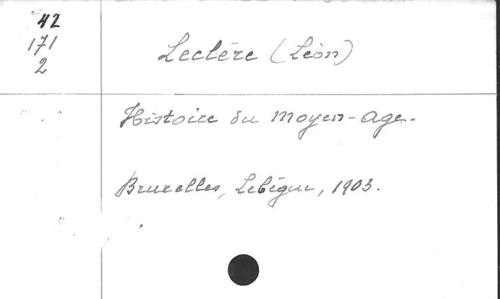 42
171
2
Leclère (Léon)
Histoire du Moyen-age.
Bruxelles, Lebègue, 1903.